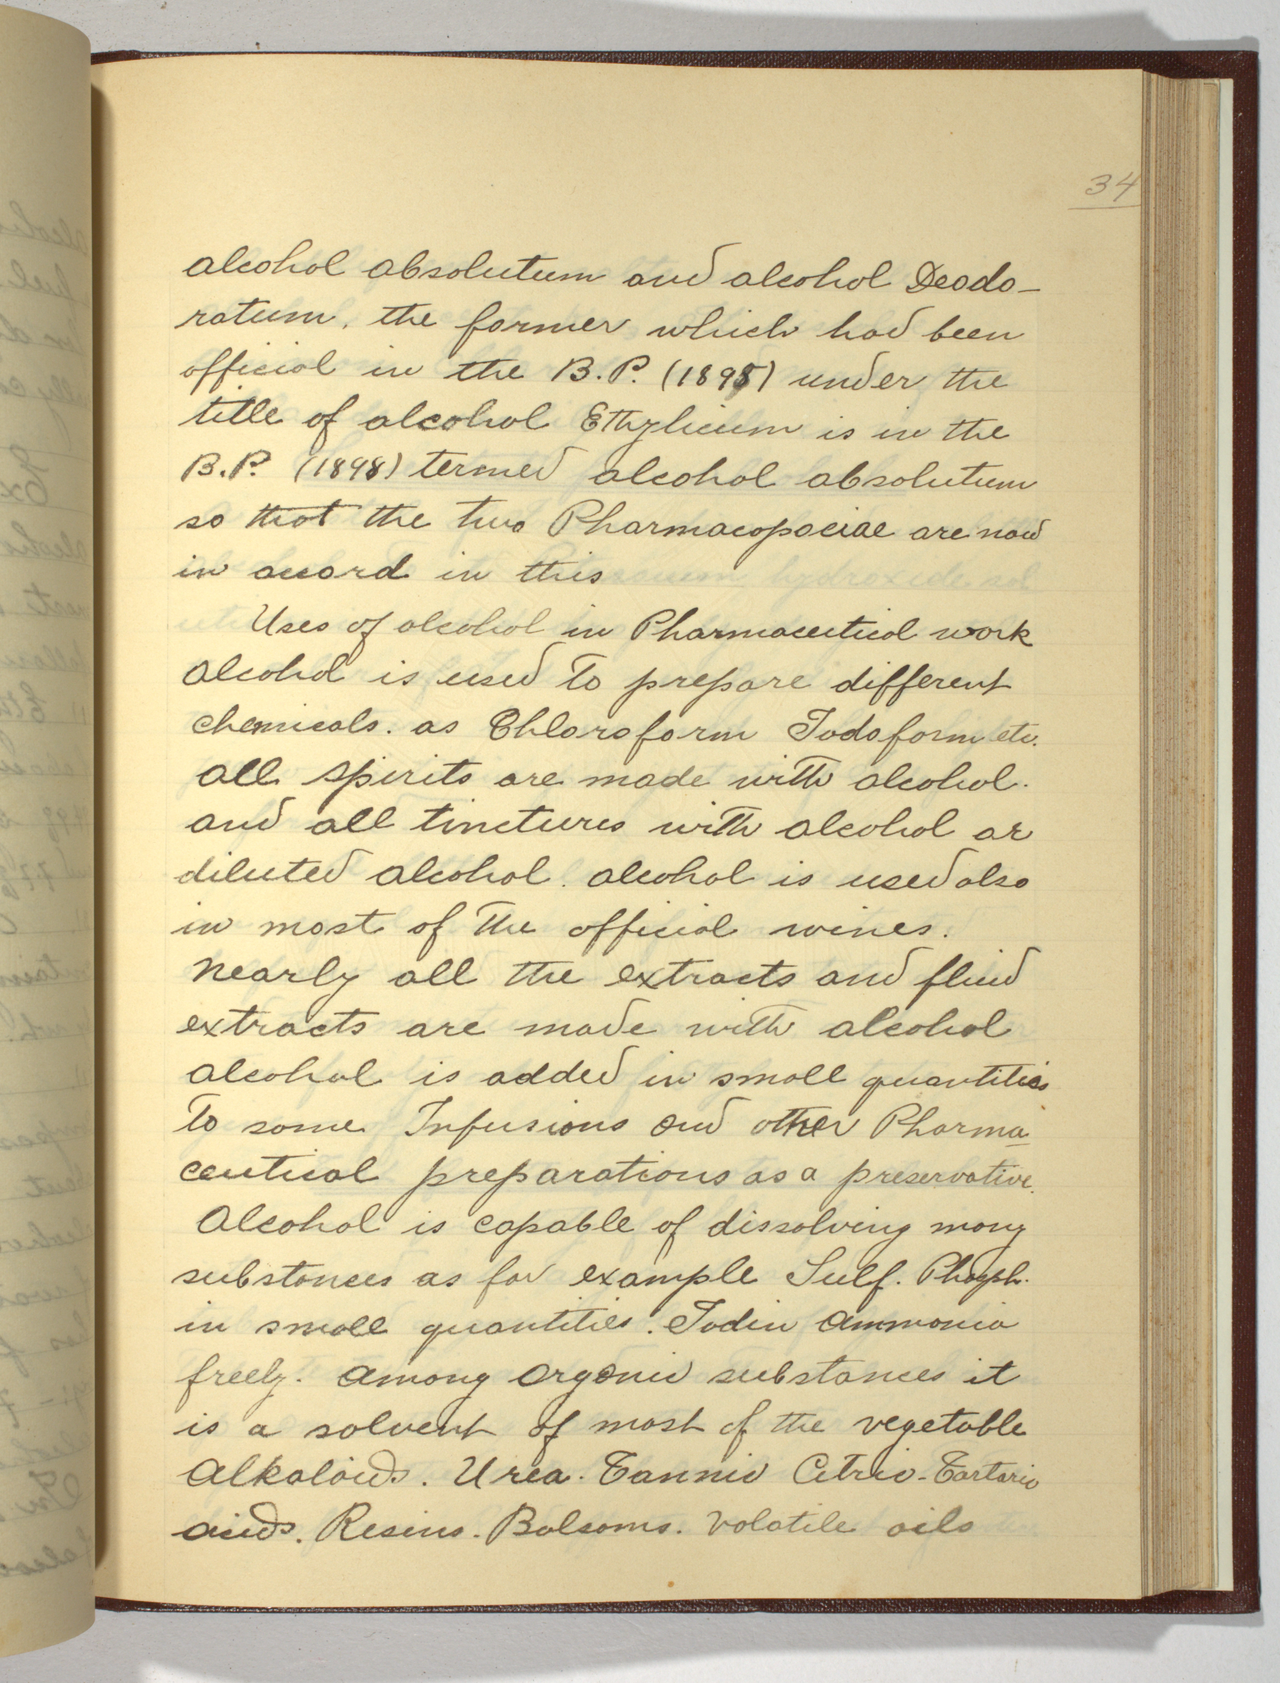 34
alcohol absolutum and alcohol Deodo-
ratum, the former which had been
official in the B.P. (1895) under the
title of alcohol Ethylicum is in the
B.P. (1898) termed alcohol absolutum
so that the two Pharmacopoeiae are now
in accord in this
Uses of alcohol in Pharmaceutical work
Alcohol is used to prepare different
chemicals. as Chloroform Iodoform etc.
all spirits are made with alcohol.
and all tinctures with alcohol or
diluted alcohol. alcohol is used also
in most of the official wines.
Nearly all the extracts and fluid
extracts are made with alcohol
alcohol is added in small quantities
to some Infusions and other Pharma
ceutical preparations as a preservative.
Alcohol is capable of dissolving many
substances as for example Sulf. Phosph.
in small quantities. Iodin Ammonia
freely. Among Organic substances it
is a solvent of most of the vegetable
Alkaloids. Urea. Tannic Citric-Tartaric
acids. Resins. Balsoms. Volatile oils